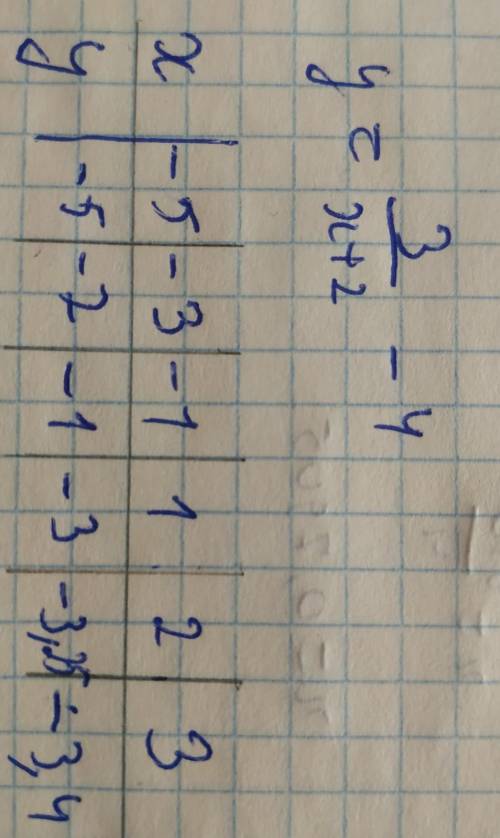 y = 3/(x+2) - 4
x | -5 | -3 | -1 | 1 | 2 | 3
y | -5 | -2 | -1 | -3 | -3,25 | -3,4